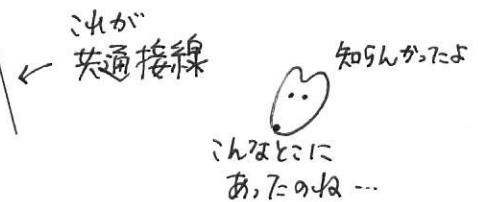 これが
共通接線
知らんかったよ
こんなとこに
あったのね…